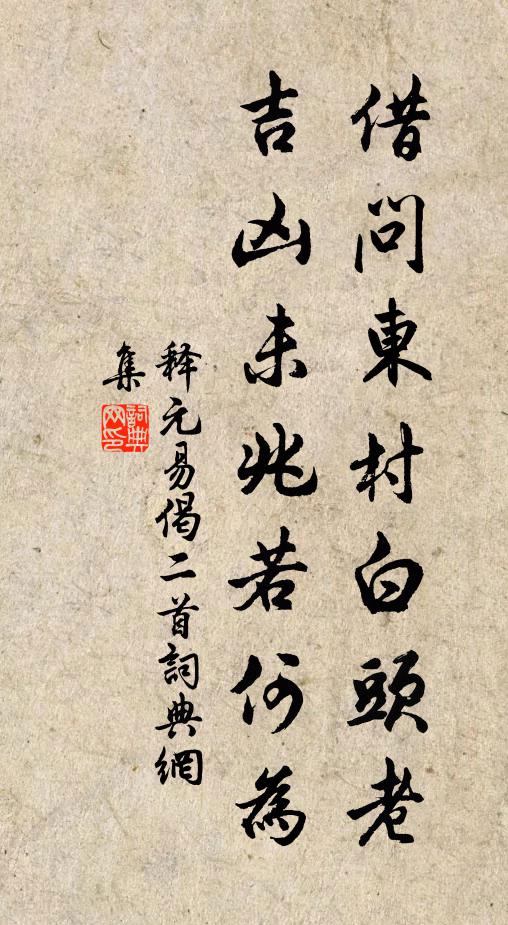 借問東村白頭老
吉凶未兆若何為
釋元易偈二首詞典網
集
詞典
网印